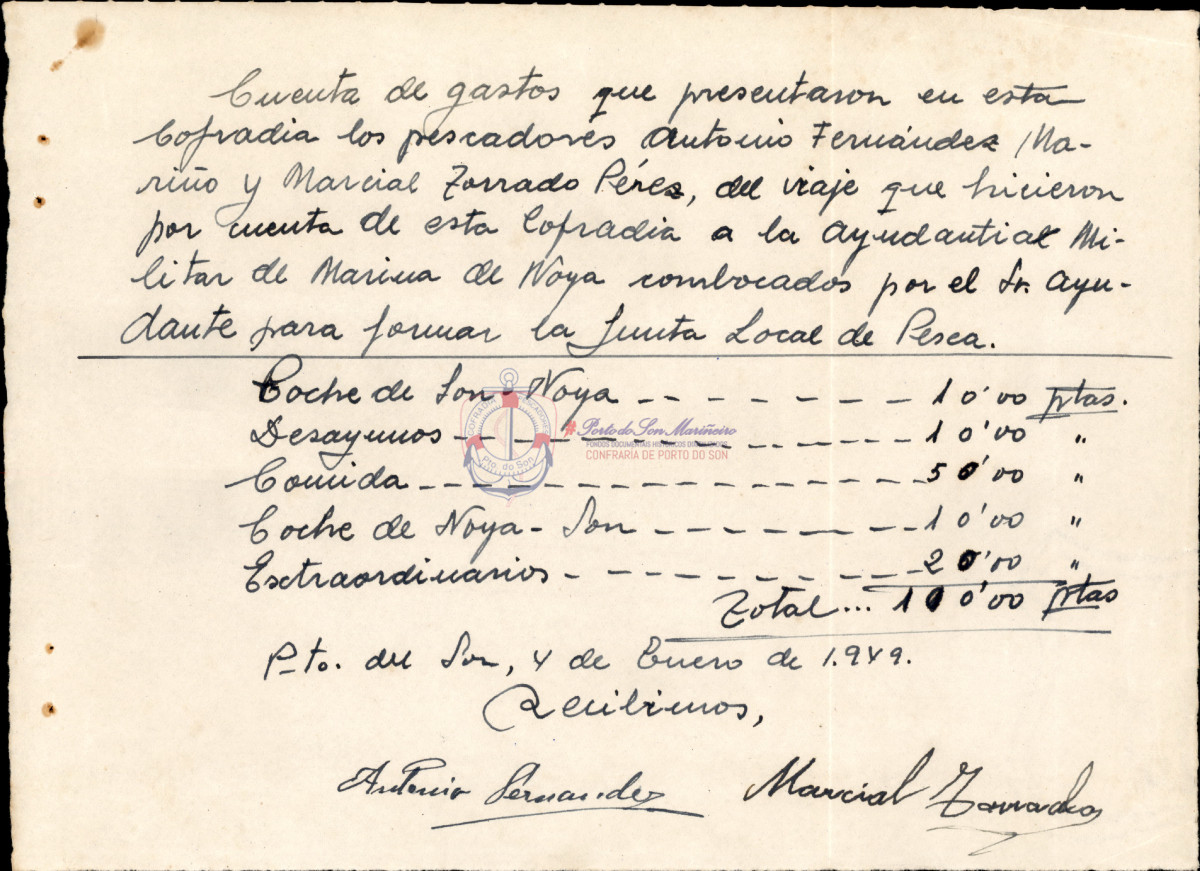 Cuenta de gastos que presentaron en esta
Cofradia los pescadores Antonio Fernández Ma-
riño y Marcial Zorrado Pérez, del viaje que hicieron
por cuenta de esta Cofradia a la Ayudantia Mi-
litar de Marina de Noya combocados por el Sr. Ayu-
dante para formar la Junta Local de Pesca.
Coche de Son-Noya - - - - - - - 10'00 ptas.
Desayunos - - - - - - - - - - - 10'00 "
Comida - - - - - - - - - - - - - 50'00 "
Coche de Noya-Son - - - - - - - 10'00 "
Esxtraordinarios - - - - - - - - - 20'00 "
Total... 100'00 ptas
Pto. del Son, 4 de Enero de 1.949.
Recibimos,
Antonio Fernandez Marcial Zorrado
COFRADIA PESCADORES
Pto. do Son
#Porto do Son Mariñeiro
FONDOS DOCUMENTAIS HISTÓRICOS DIXITALIZADOS
CONFRARÍA DE PORTO DO SON